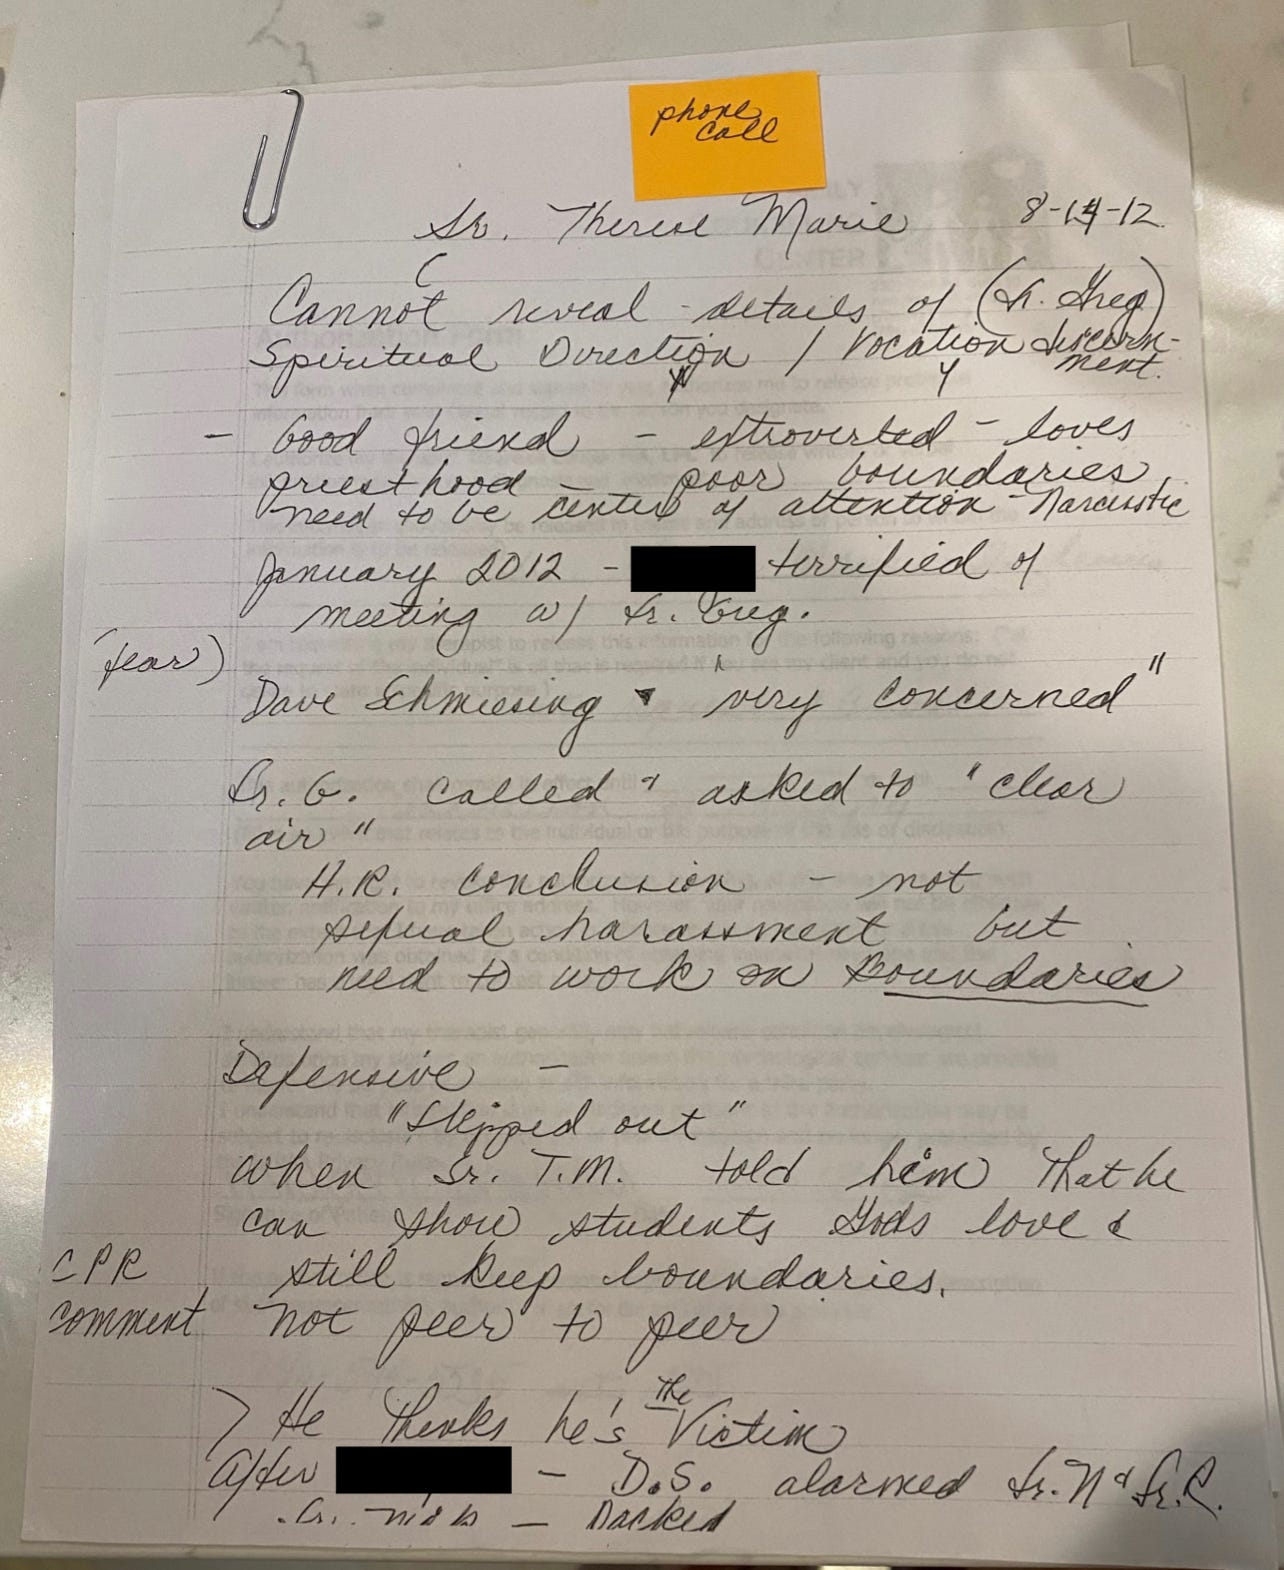 phone
call
Sr. Therese Marie 8-14-12
Cannot reveal details of (Fr. Greg)
Spiritual Direction / Vocation discern-
ment.
- Good friend - extroverted - loves
priesthood - poor boundaries
need to be center of attention - Narcissistic
January 2012 - terrified of
meeting w/ Fr. Greg.
(fear)
Dave Schmiesing "very concerned"
Fr. G. called & asked to "clear
air"
H.R. conclusion - not
sexual harassment but
need to work on Boundaries
Defensive -
"Skipped out"
when Sr. T.M. told him that he
can show students Gods love &
still keep boundaries.
CPR
comment
not peer to peer
> He thinks he's the Victim
After - D.S. alarmed Fr. N & Fr. R.